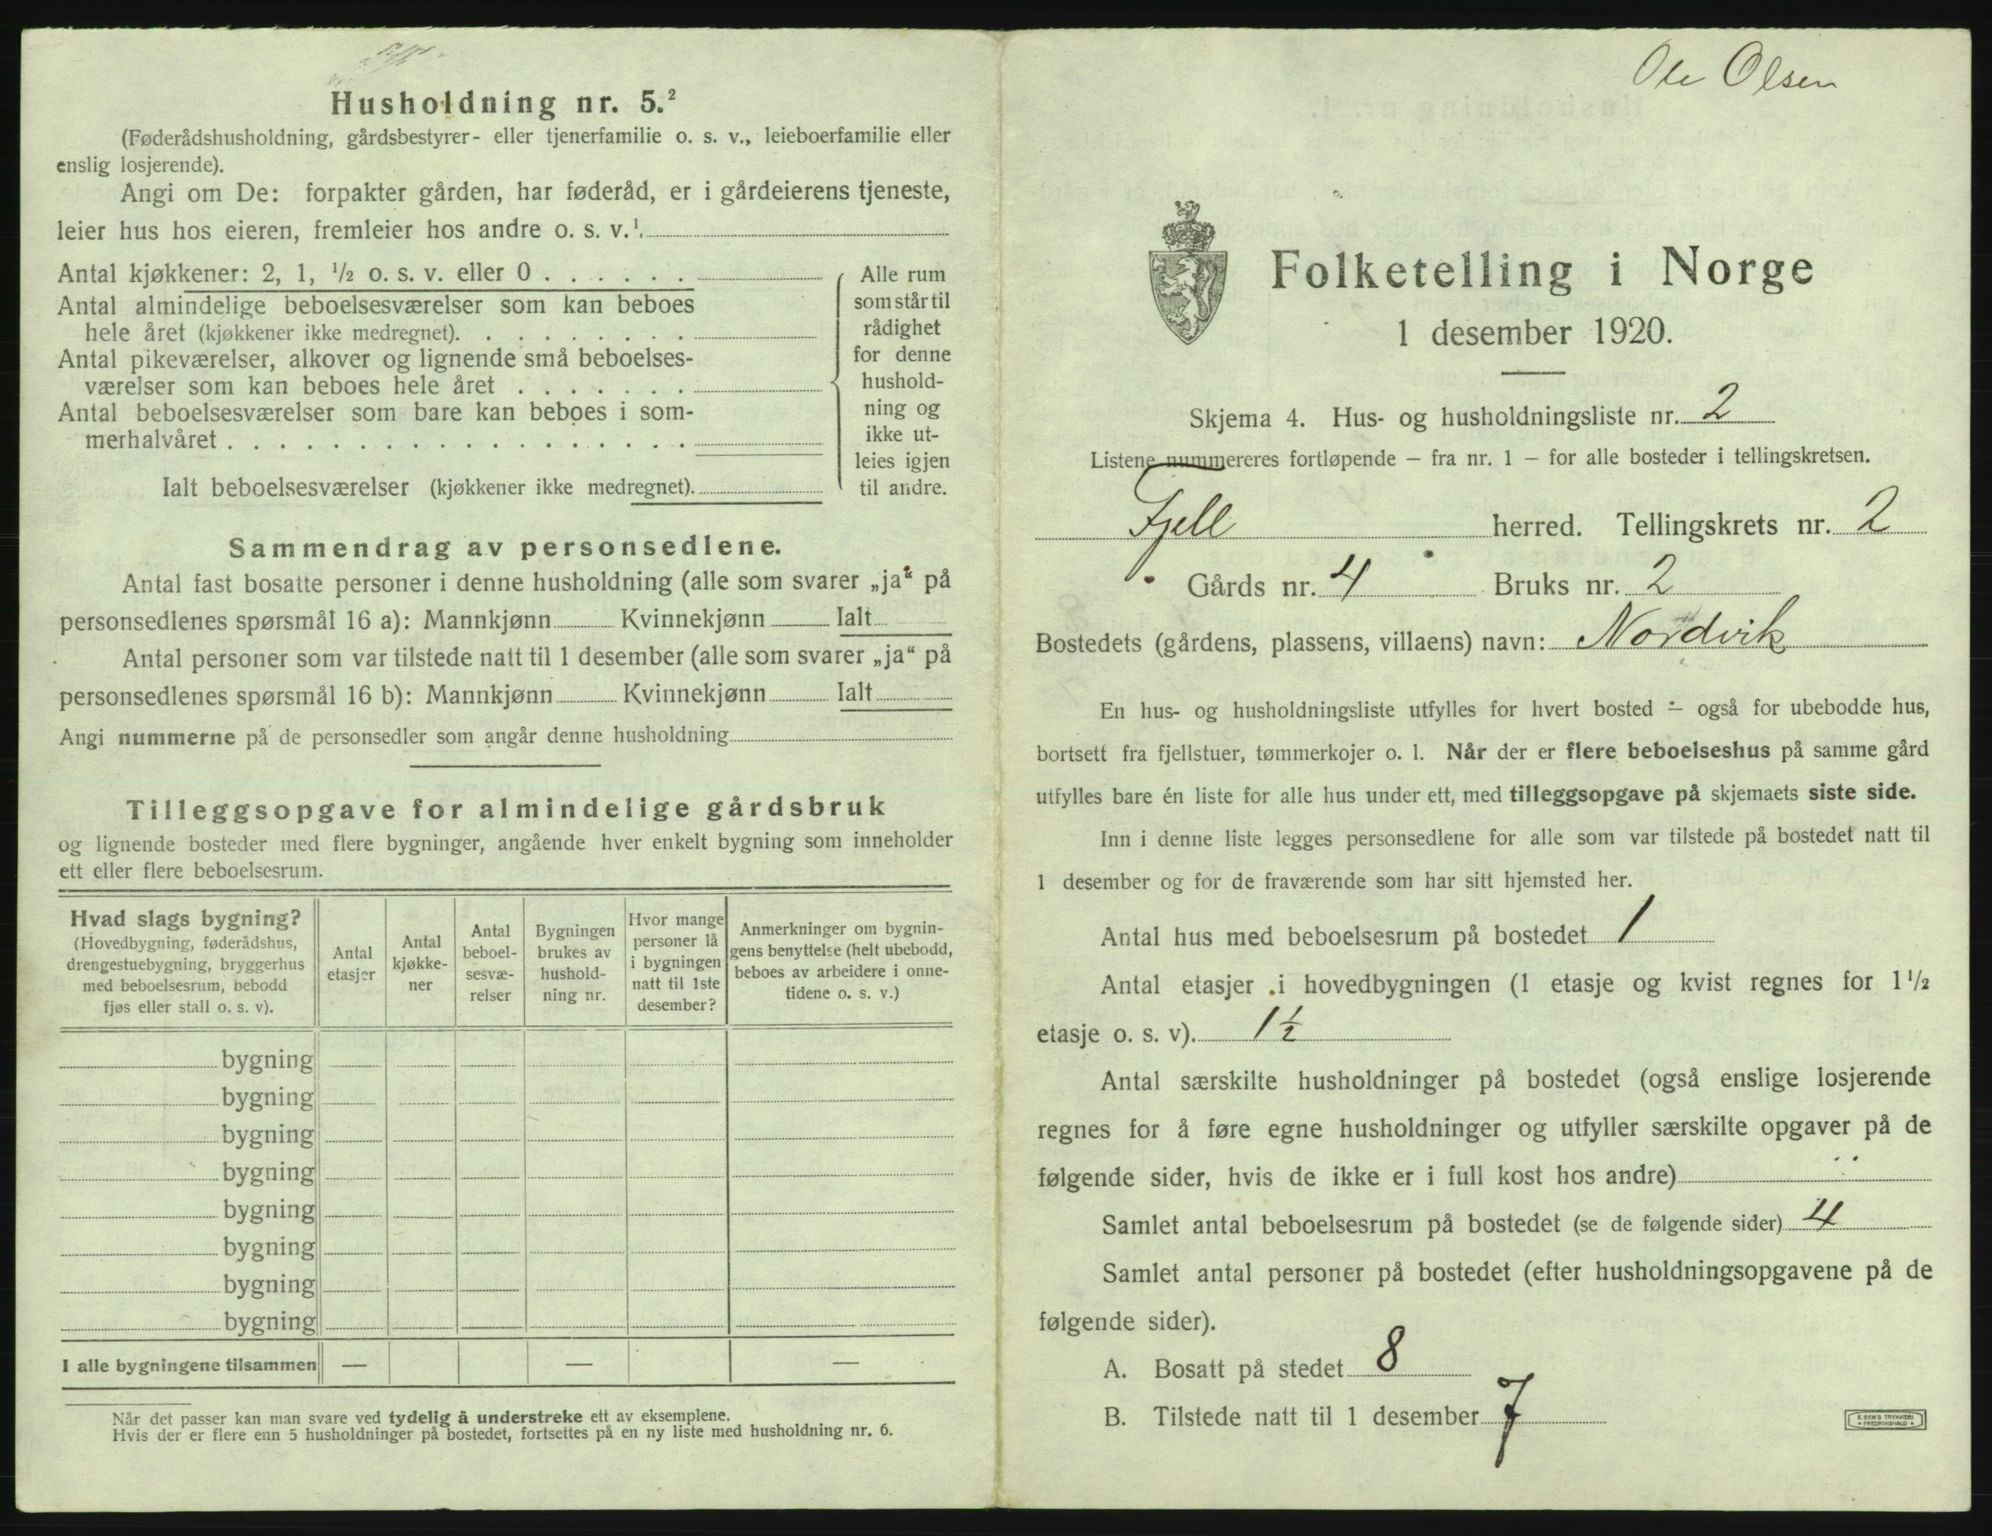 Husholdning nr. 5.²
(Føderådshusholdning, gårdsbestyrer- eller tjenerfamilie o. s. v., leieboerfamilie eller
enslig losjerende).
Angi om De: forpakter gården, har føderåd, er i gårdeierens tjeneste,
leier hus hos eieren, fremleier hos andre o. s. v.¹.
Antal kjøkkener: 2, 1, ½ o. s. v. eller 0 . . . . . .
Antal almindelige beboelsesværelser som kan beboes
hele året (kjøkkener ikke medregnet). . . . . . . . .
Antal pikeværelser, alkover og lignende små beboelses-
værelser som kan beboes hele året . . . . . . .
Antal beboelsesværelser som bare kan beboes i som-
merhalvåret . . . . . . . . . . . . . . . . . .
Alle rum
som står til
rådighet
for denne
hushold-
ning og
ikke ut-
leies igjen
til andre.
Ialt beboelsesværelser (kjøkkener ikke medregnet).
Sammendrag av personsedlene.
Antal fast bosatte personer i denne husholdning (alle som svarer „ja“ på
personsedlenes spørsmål 16 a): Mannkjønn Kvinnekjønn Ialt
Antal personer som var tilstede natt til 1 desember (alle som svarer „ja“ på
personsedlenes spørsmål 16 b): Mannkjønn Kvinnekjønn Ialt
Angi nummerne på de personsedler som angår denne husholdning
Tilleggsopgave for almindelige gårdsbruk
og lignende bosteder med flere bygninger, angående hver enkelt bygning som inneholder
ett eller flere beboelsesrum.
Hvad slags bygning?
(Hovedbygning, føderådshus,
drengestuebygning, bryggerhus
med beboelsesrum, bebodd
fjøs eller stall o. s. v).
Antal
etasjer
Antal
kjøkke-
ner
Antal
beboel-
sesvæ-
relser
Bygningen
brukes av
hushold-
ning nr.
Hvor mange
personer lå
i bygningen
natt til 1ste
desember?
Anmerkninger om bygnin-
gens benyttelse (helt ubebodd,
beboes av arbeidere i onne-
tidene o. s. v.)
bygning
bygning
bygning
bygning
bygning
bygning
bygning
bygning
I alle bygningene tilsammen — — —
Når det passer kan man svare ved tydelig å understreke ett av eksemplene.
Hvis der er flere enn 5 husholdninger på bostedet, fortsettes på en ny liste med husholdning nr. 6.
Ole Olsen
Folketelling i Norge
1 desember 1920.
Skjema 4. Hus- og husholdningsliste nr. 2
Listene nummereres fortløpende – fra nr. 1 – for alle bosteder i tellingskretsen.
Fjell herred. Tellingskrets nr. 2
Gårds nr. 4 Bruks nr. 2
Bostedets (gårdens, plassens, villaens) navn: Nordvik
En hus- og husholdningsliste utfylles for hvert bosted – også for ubebodde hus,
bortsett fra fjellstuer, tømmerkojer o. l. Når der er flere beboelseshus på samme gård
utfylles bare én liste for alle hus under ett, med tilleggsopgave på skjemaets siste side.
Inn i denne liste legges personsedlene for alle som var tilstede på bostedet natt til
1 desember og for de fraværende som har sitt hjemsted her.
Antal hus med beboelsesrum på bostedet 1
Antal etasjer i hovedbygningen (1 etasje og kvist regnes for 1½
etasje o. s. v). 1½
Antal særskilte husholdninger på bostedet (også enslige losjerende
regnes for å føre egne husholdninger og utfyller særskilte opgaver på de
følgende sider, hvis de ikke er i full kost hos andre)
Samlet antal beboelsesrum på bostedet (se de følgende sider) 4
Samlet antal personer på bostedet (efter husholdningsopgavene på de
følgende sider).
A. Bosatt på stedet 8
B. Tilstede natt til 1 desember 7
E. SEM'S TRYKKERI
FREDRIKSHALD